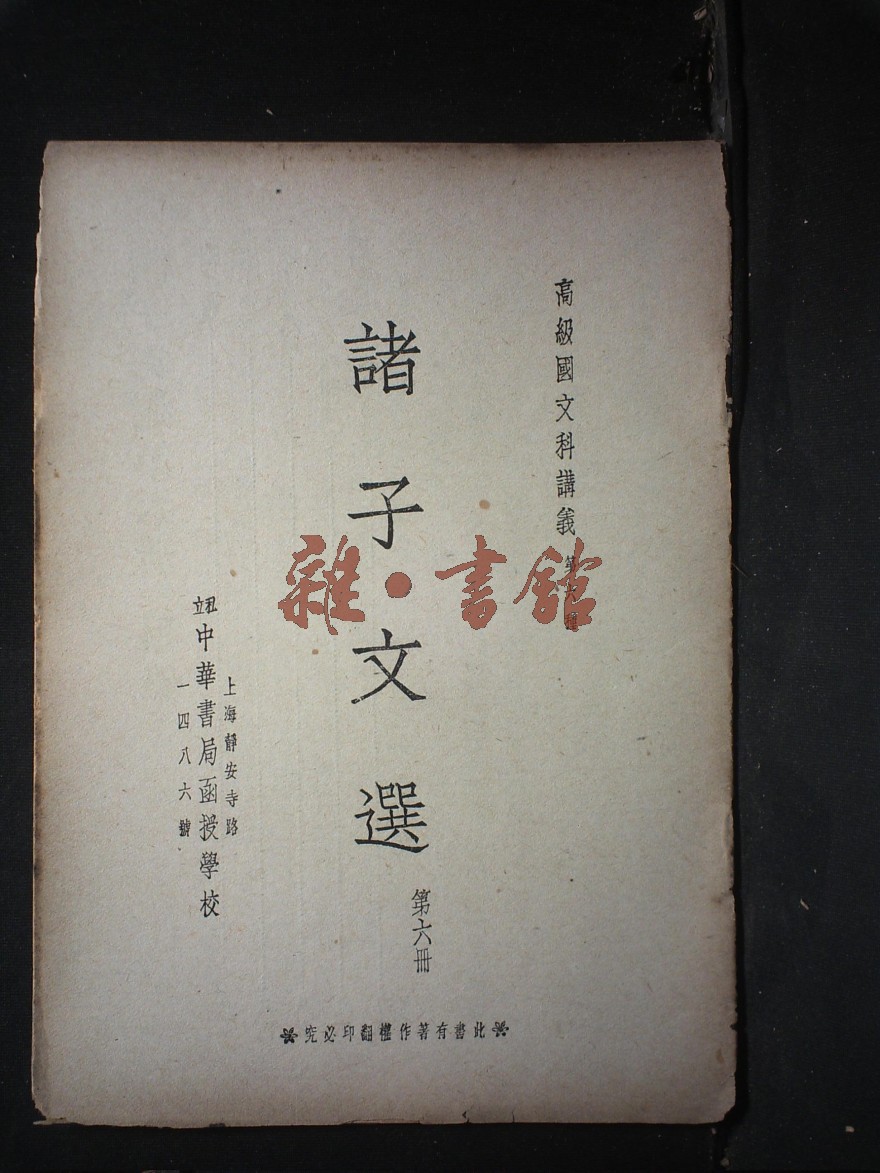 高級國文科講義 第六種
諸子文選
第六冊
上海靜安寺路
一四八六號
中華書局函授學校
此書有著作權翻印必究
雜·書館